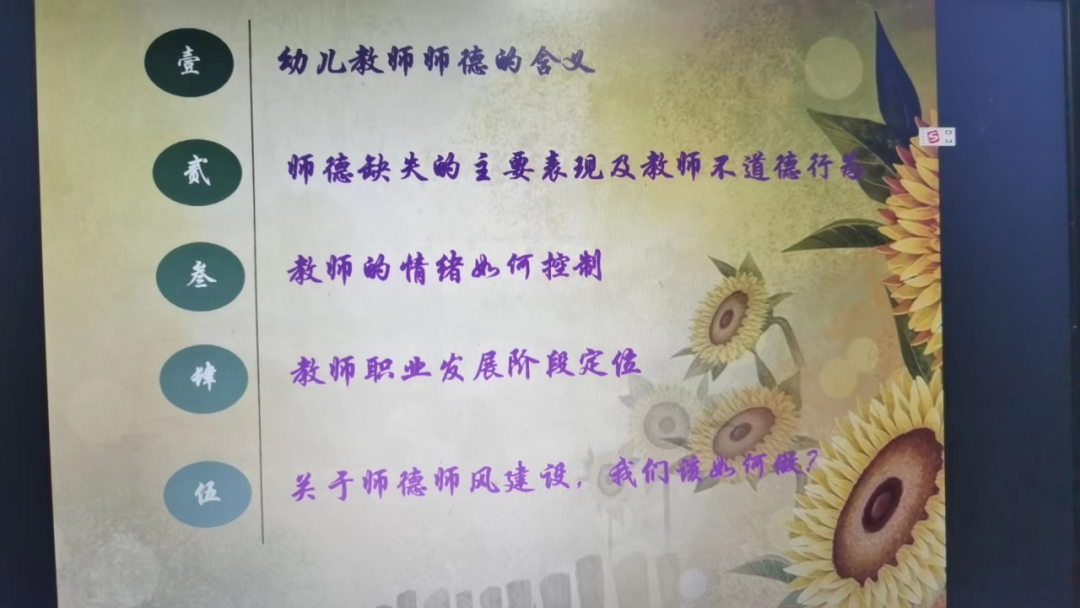 壹 幼儿教师师德的含义
贰 师德缺失的主要表现及教师不道德行为
叁 教师的情绪如何控制
肆 教师职业发展阶段定位
伍 关于师德师风建设，我们该如何做？